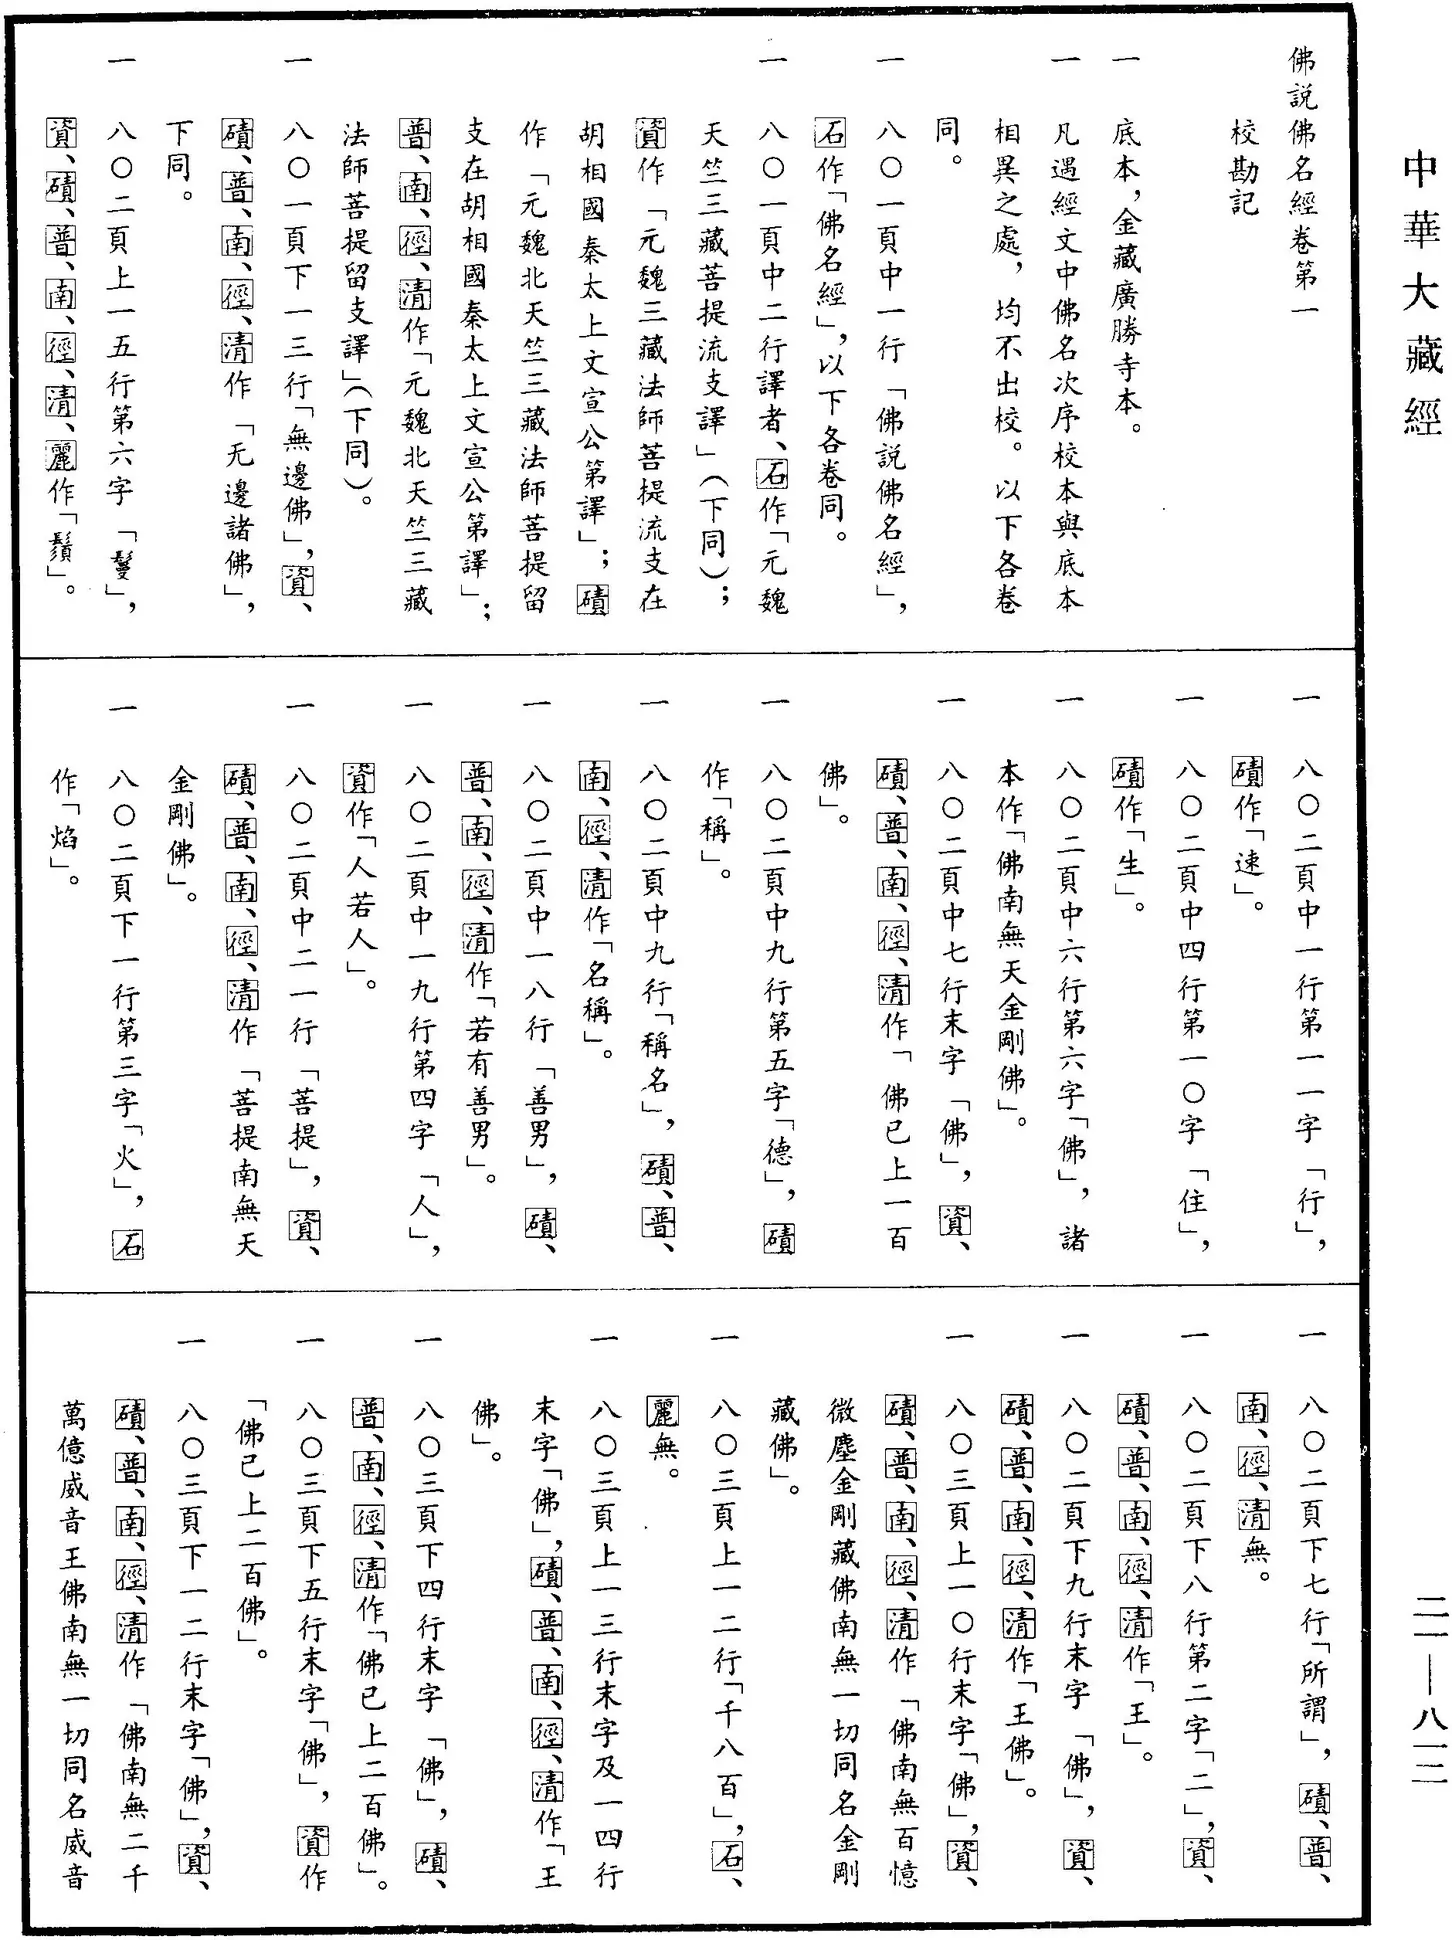 中華大藏經
二一—八一二
佛説佛名經卷第一
校勘記
一 底本，金藏廣勝寺本。
一 凡遇經文中佛名次序校本與底本
相異之處，均不出校。以下各卷
同。
一 八〇一頁中一行「佛説佛名經」，
石作「佛名經」，以下各卷同。
一 八〇一頁中二行譯者、石作「元魏
天竺三藏菩提流支譯」（下同）；
資作「元魏三藏法師菩提流支在
胡相國秦太上文宣公第譯」；磧
作「元魏北天竺三藏法師菩提留
支在胡相國秦太上文宣公第譯」；
普、南、徑、清作「元魏北天竺三藏
法師菩提留支譯」（下同）。
一 八〇一頁下一三行「無邊佛」，資、
磧、普、南、徑、清作「无邊諸佛」，
下同。
一 八〇二頁上一五行第六字「鬘」，
資、磧、普、南、徑、清、麗作「鬚」。
一 八〇二頁中一行第一一字「行」，
磧作「速」。
一 八〇二頁中四行第一〇字「住」，
磧作「生」。
一 八〇二頁中六行第六字「佛」，諸
本作「佛南無天金剛佛」。
一 八〇二頁中七行末字「佛」，資、
磧、普、南、徑、清作「佛已上一百
佛」。
一 八〇二頁中九行第五字「德」，磧
作「稱」。
一 八〇二頁中九行「稱名」，磧、普、
南、徑、清作「名稱」。
一 八〇二頁中一八行「善男」，磧、
普、南、徑、清作「若有善男」。
一 八〇二頁中一九行第四字「人」，
資作「人若人」。
一 八〇二頁中二一行「菩提」，資、
磧、普、南、徑、清作「菩提南無天
金剛佛」。
一 八〇二頁下一行第三字「火」，石
作「焰」。
一 八〇二頁下七行「所謂」，磧、普、
南、徑、清無。
一 八〇二頁下八行第二字「二」，資、
磧、普、南、徑、清作「王」。
一 八〇二頁下九行末字「佛」，資、
磧、普、南、徑、清作「王佛」。
一 八〇三頁上一〇行末字「佛」，資、
磧、普、南、徑、清作「佛南無百憶
微塵金剛藏佛南無一切同名金剛
藏佛」。
一 八〇三頁上一二行「千八百」，石、
麗無。
一 八〇三頁上一三行末字及一四行
末字「佛」，磧、普、南、徑、清作「王
佛」。
一 八〇三頁下四行末字「佛」，磧、
普、南、徑、清作「佛已上二百佛」。
一 八〇三頁下五行末字「佛」，資作
「佛已上二百佛」。
一 八〇三頁下一二行末字「佛」，資、
磧、普、南、徑、清作「佛南無二千
萬億威音王佛南無一切同名威音